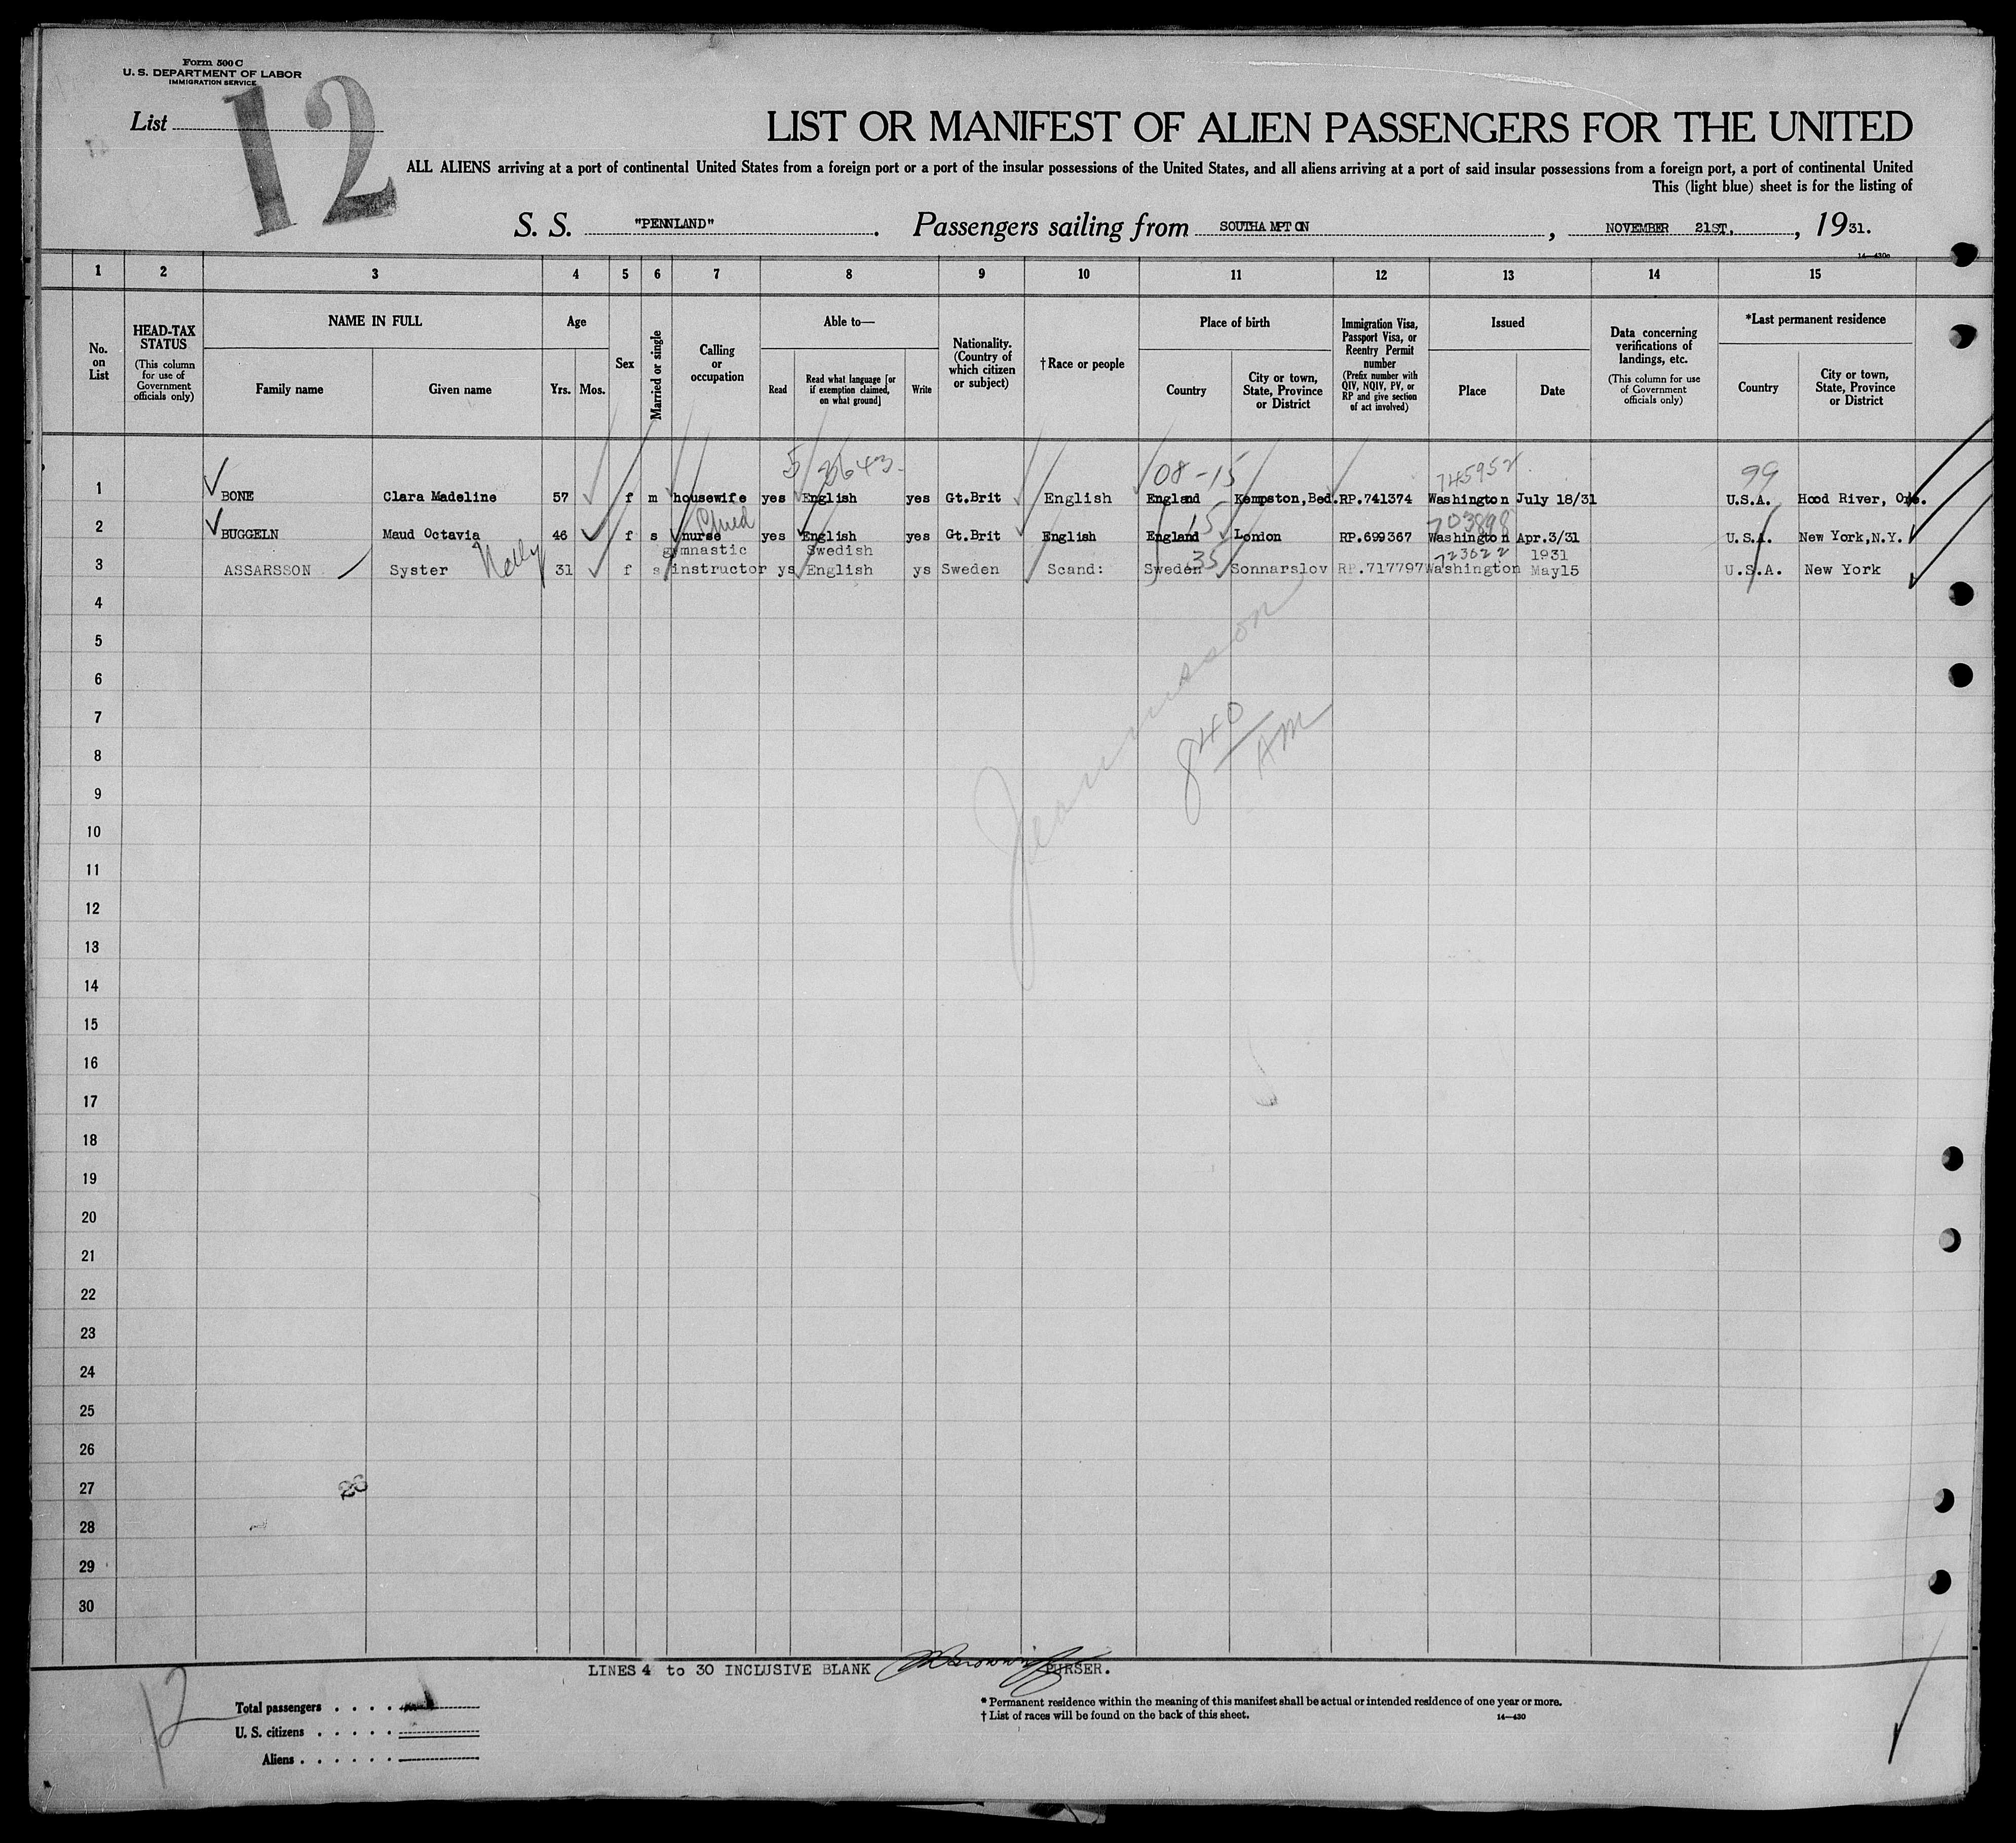 Form 500 C
U. S. DEPARTMENT OF LABOR
IMMIGRATION SERVICE
List
12
LIST OR MANIFEST OF ALIEN PASSENGERS FOR THE UNITED
ALL ALIENS arriving at a port of continental United States from a foreign port or a port of the insular possessions of the United States, and all aliens arriving at a port of said insular possessions from a foreign port, a port of continental United
This (light blue) sheet is for the listing of
S. S. "PENNLAND". Passengers sailing from SOUTHAMPTON, NOVEMBER 21ST, , 1931.
14—430c
1 2 3 4 5 6 7 8 9 10 11 12 13 14 15
No. on List
HEAD-TAX STATUS (This column for use of Government officials only)
NAME IN FULL
Family name Given name
Age
Yrs. Mos.
Sex
Married or single
Calling or occupation
Able to—
Read Read what language [or if exemption claimed, on what ground] Write
Nationality. (Country of which citizen or subject)
† Race or people
Place of birth
Country City or town, State, Province or District
Immigration Visa, Passport Visa, or Reentry Permit number (Prefix number with QIV, NQIV, PV, or RP and give section of act involved)
Issued
Place Date
Data concerning verifications of landings, etc. (This column for use of Government officials only)
*Last permanent residence
Country City or town, State, Province or District
08-15 745952 99
1 BONE Clara Madeline 57 f m housewife yes English yes Gt.Brit English England Kempston, Bed. RP.741374 Washington July 18/31 U.S.A. Hood River, Ore.
15 703898
2 BUGGELN Maud Octavia 46 f s nurse yes English yes Gt.Brit English England London RP.699367 Washington Apr.3/31 U.S.A. New York, N.Y.
Nelly gymnastic Swedish 35 723622 1931
3 ASSARSSON Syster 31 f s instructor ys English ys Sweden Scand: Sweden Sonnarslov RP.717797 Washington May15 U.S.A. New York
4
5
6
7
8 840 AM
9
10
11
12
13
14
15
16
17
18
19
20
21
22
23
24
25
26
27
28
29
30
LINES 4 to 30 INCLUSIVE BLANK PURSER.
12
Total passengers
U. S. citizens
Aliens
* Permanent residence within the meaning of this manifest shall be actual or intended residence of one year or more.
† List of races will be found on the back of this sheet.
14—430